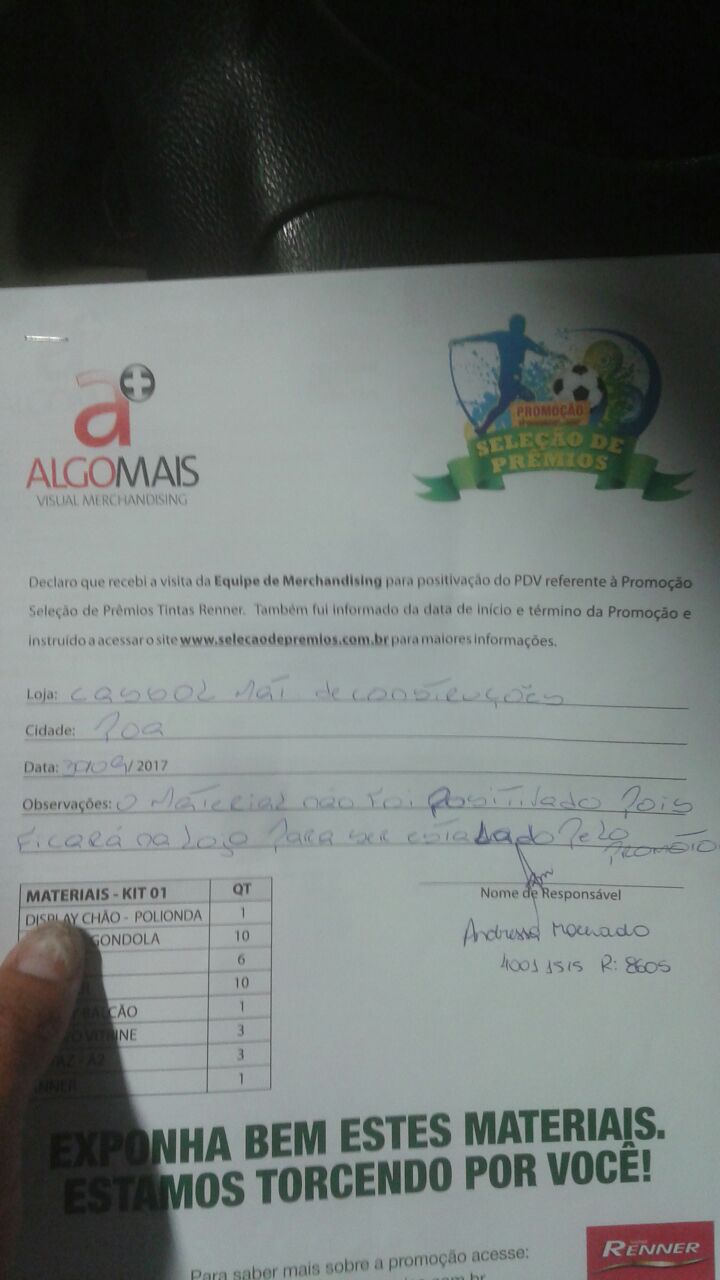 a+
ALGOMAIS
VISUAL MERCHANDISING
PROMOÇÃO
SELEÇÃO DE
PRÊMIOS
Declaro que recebi a visita da Equipe de Merchandising para positivação do PDV referente à Promoção
Seleção de Prêmios Tintas Renner. Também fui informado da data de início e término da Promoção e
instruído a acessar o site www.selecaodepremios.com.br para maiores informações.
Loja: cassol Mat deconstruções
Cidade: Poa
Data: /2017
Observações: O Material não foi Positivado Pois
Ficará na Loja Para ser Pelo
Nome de Responsável
Andressa Machado
4001 1515 R: 8605
MATERIAIS - KIT 01 QT
DISPLAY CHÃO - POLIONDA 1
GONDOLA 10
6
10
BALCÃO 1
VITRINE 3
A2 3
1
EXPONHA BEM ESTES MATERIAIS.
ESTAMOS TORCENDO POR VOCÊ!
Para saber mais sobre a promoção acesse:
RENNER